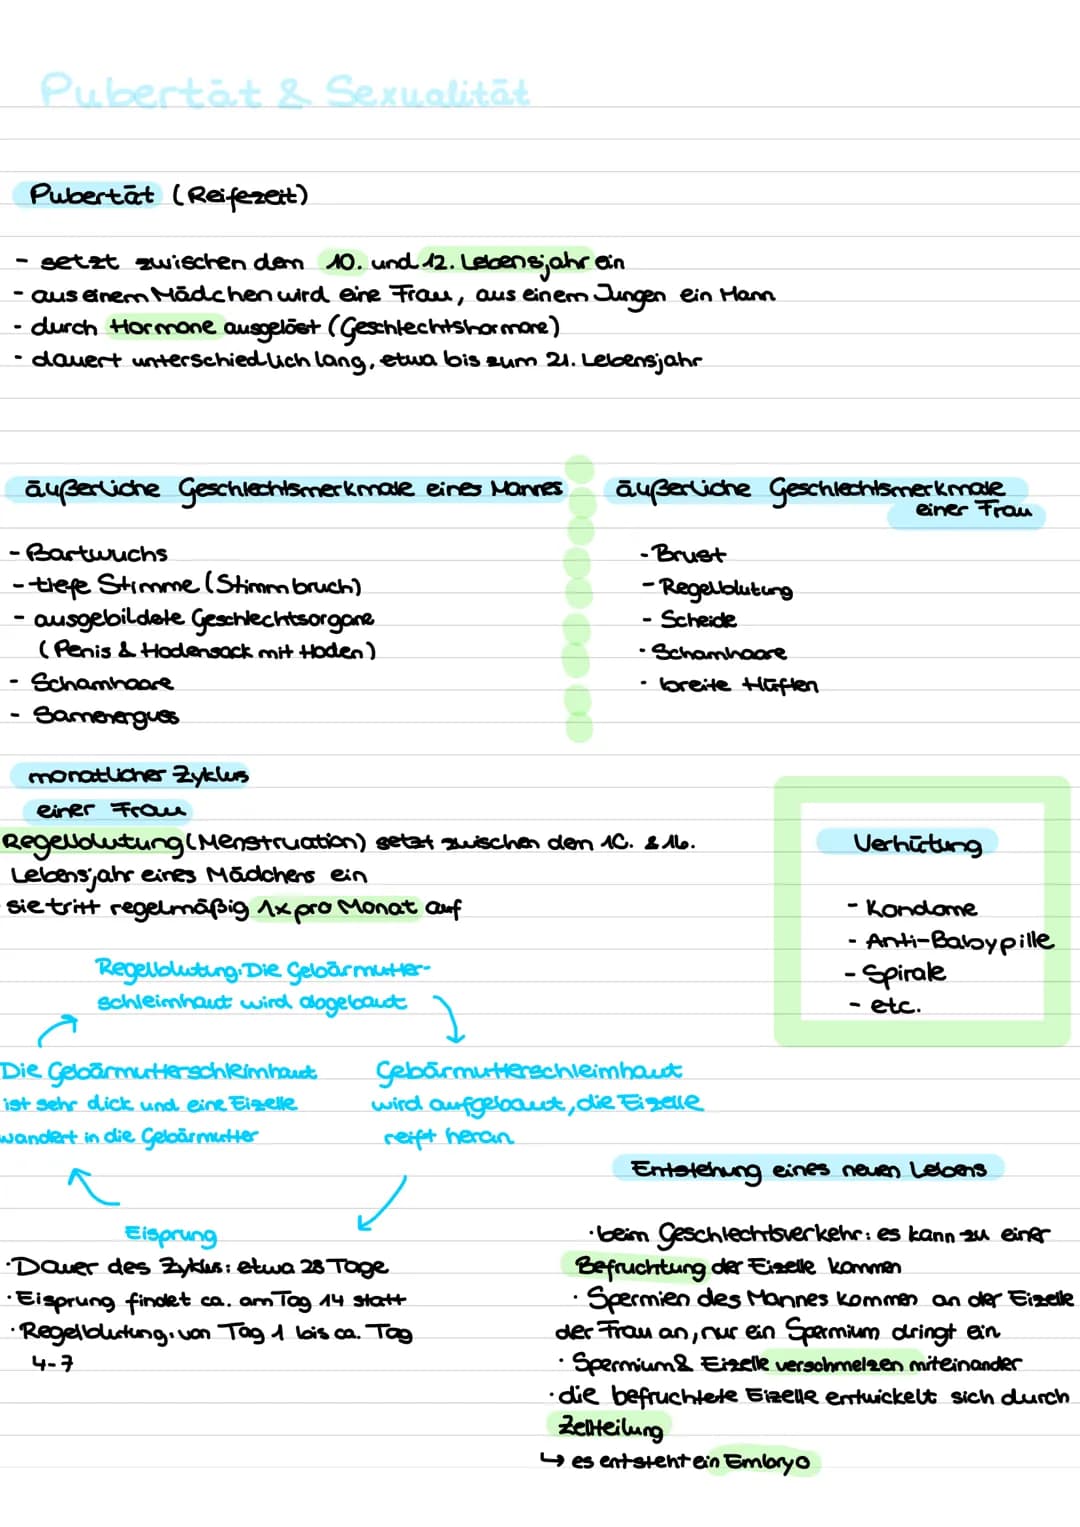 Pubertät & Sexualität
Pubertät (Reifezeit)
- setzt zwischen dem 10. und 12. Lebensjahr ein
- aus einem Mädchen wird eine Frau, aus einem Jungen ein Mann
- durch Hormone ausgelöst (Geschlechtshormone)
- dauert unterschiedlich lang, etwa bis zum 21. Lebensjahr
äußerliche Geschlechtsmerkmale eines Mannes
- Bartwuchs
- tiefe Stimme (Stimmbruch)
- ausgebildete Geschlechtsorgane
(Penis & Hodensack mit Hoden)
- Schamhaare
- Samenerguss
äußerliche Geschlechtsmerkmale
einer Frau
- Brust
- Regelblutung
- Scheide
- Schamhaare
- breite Hüften
monatlicher Zyklus
einer Frau
Regelblutung (Menstruation) setzt zwischen den 10. & 16.
Lebensjahr eines Mädchens ein
sie tritt regelmäßig 1x pro Monat auf
Regelblutung: Die Gebärmutter-
schleimhaut wird abgebaut
Gebärmutterschleimhaut
wird aufgebaut, die Eizelle
reift heran
Eisprung
Die Gebärmutterschleimhaut
ist sehr dick und eine Eizelle
wandert in die Gebärmutter
· Dauer des Zyklus: etwa 28 Tage
· Eisprung findet ca. am Tag 14 statt
· Regelblutung: von Tag 1 bis ca. Tag
4-7
Verhütung
- Kondome
- Anti-Babypille
- Spirale
- etc.
Entstehung eines neuen Lebens
· beim Geschlechtsverkehr: es kann zu einer
Befruchtung der Eizelle kommen
· Spermien des Mannes kommen an der Eizelle
der Frau an, nur ein Spermium dringt ein
· Spermium & Eizelle verschmelzen miteinander
· die befruchtete Eizelle entwickelt sich durch
Zellteilung
↳ es entsteht ein Embryo